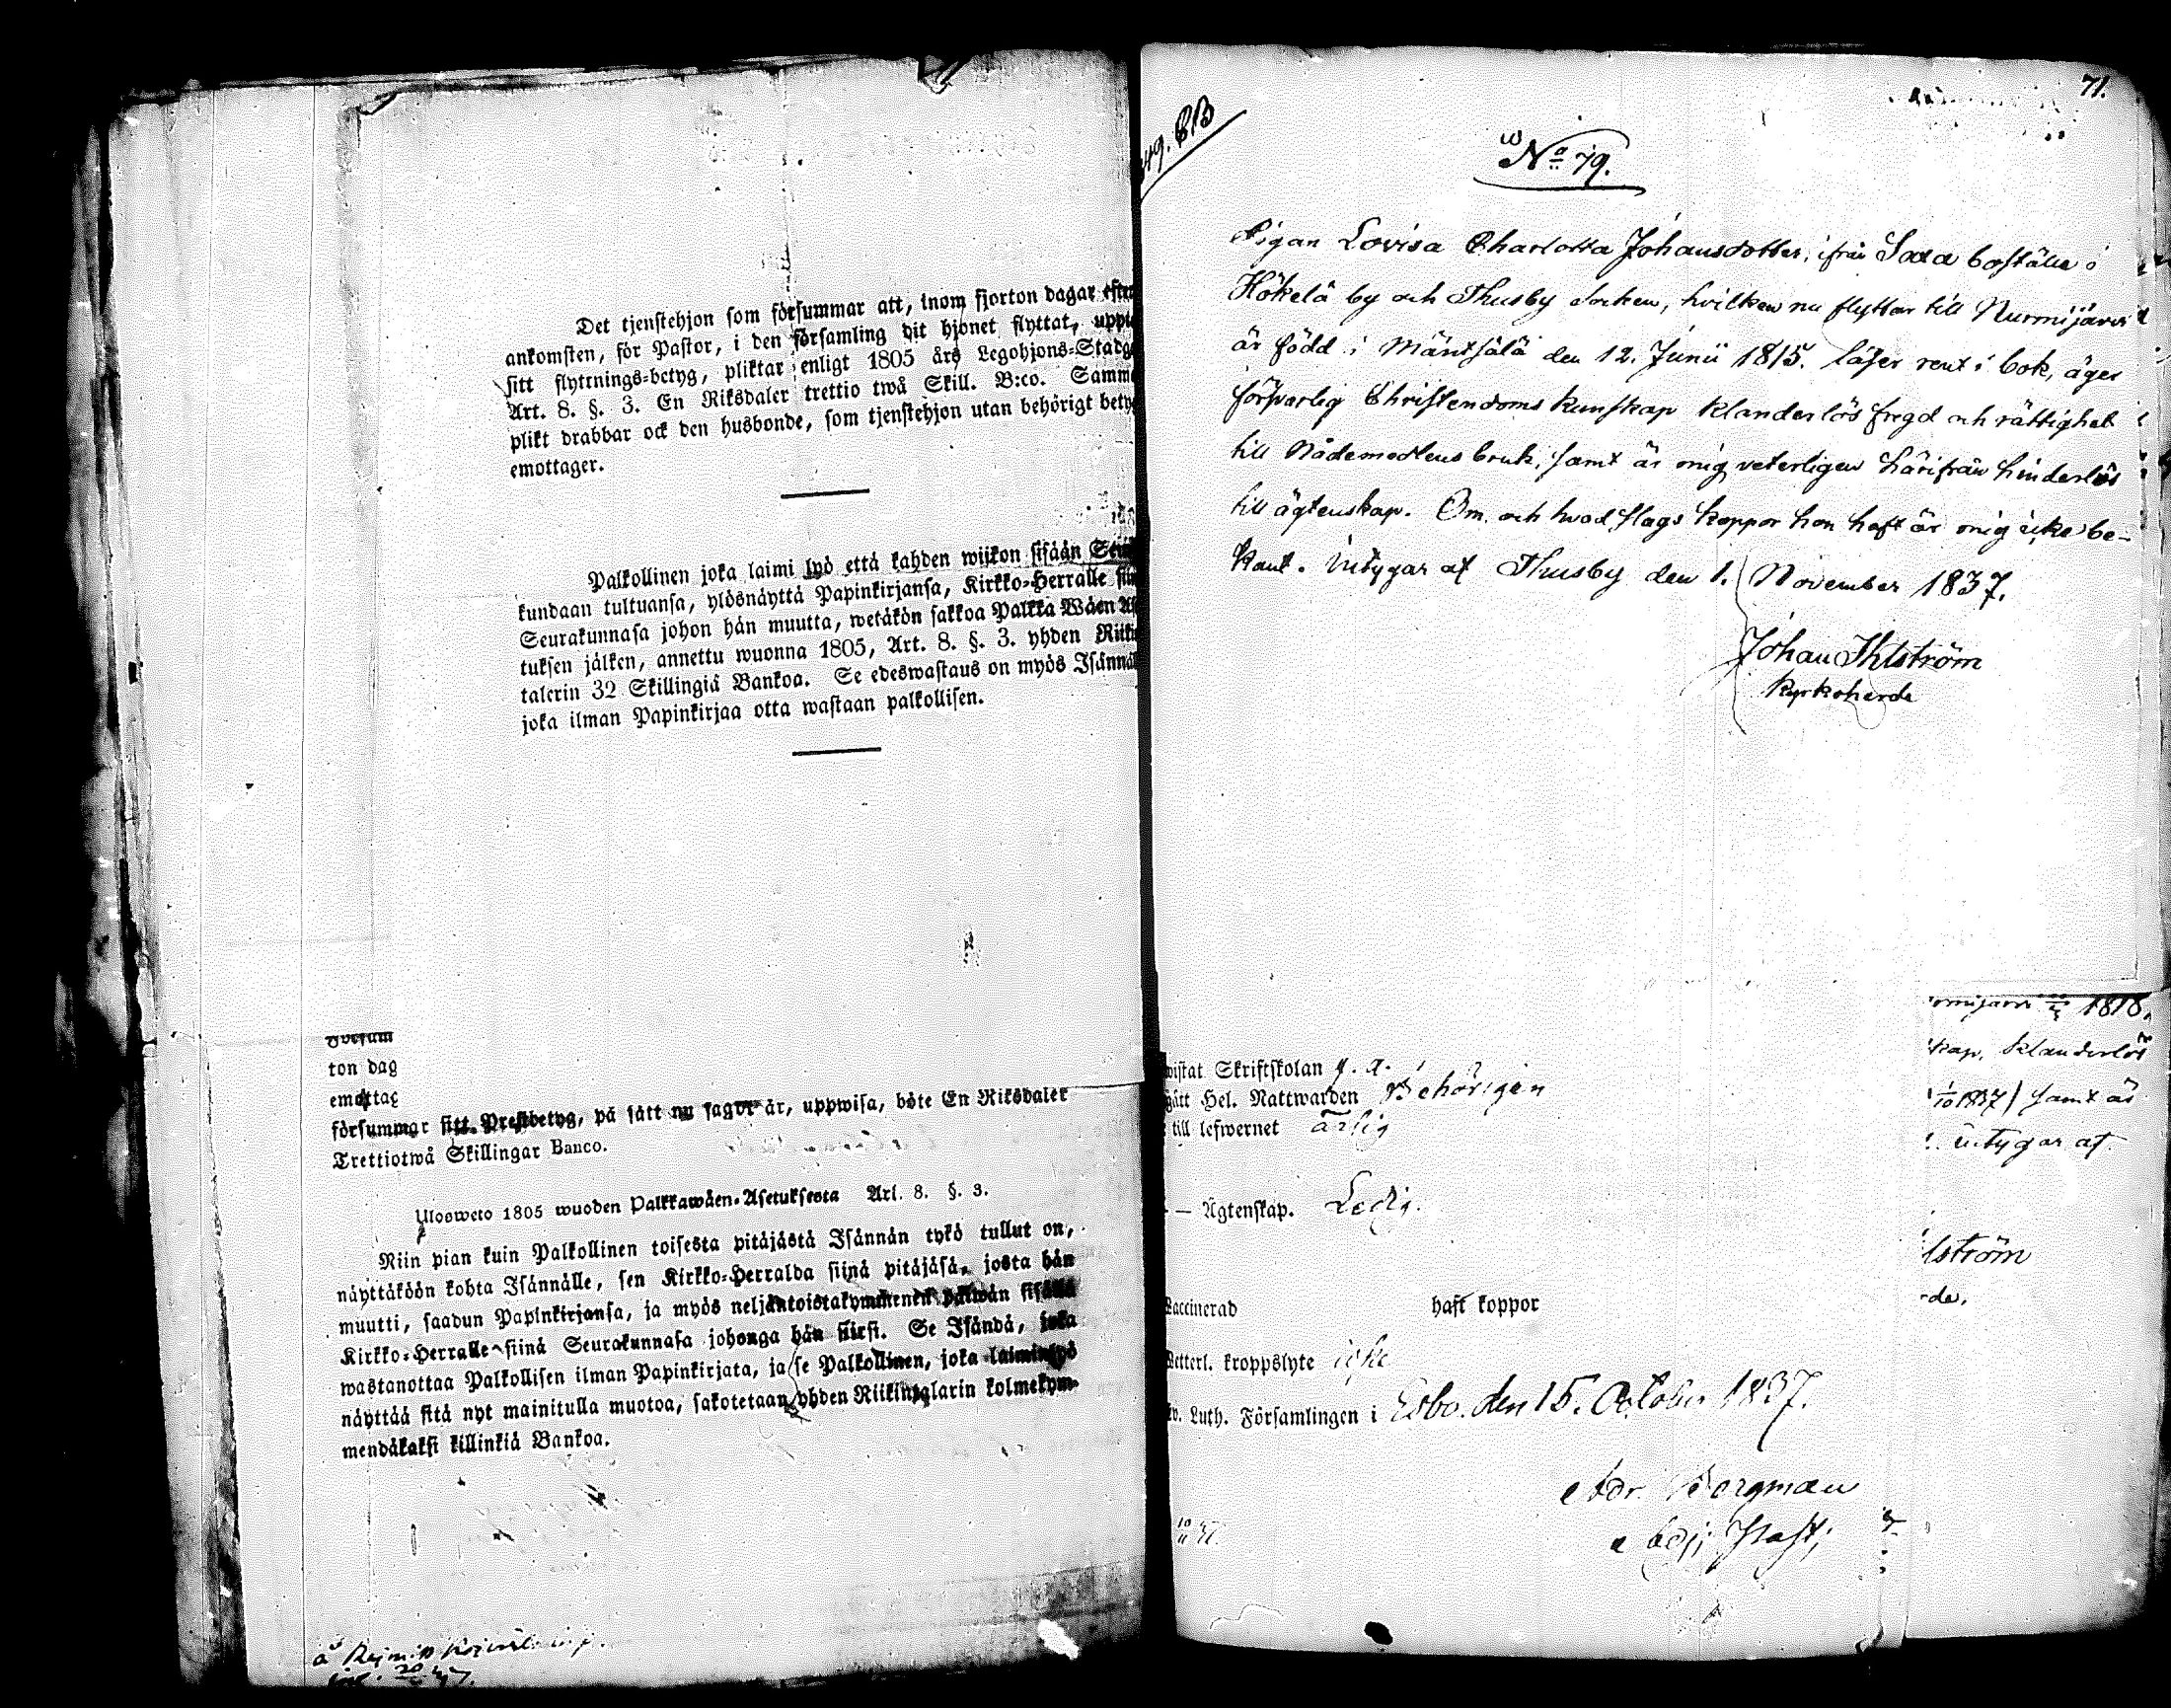 Det tjenstehjon som försummar att, inom fjorton dagar efter
ankomsten, för Pastor, i den församling dit hjonet flyttat, uppte
sitt flyttnings-betyg, pliktar enligt 1805 års Legohjons-Stadg
Art. 8. §. 3. En Riksdaler trettio twå Skill. B:co. Samma
plikt drabbar ock den husbonde, som tjenstehjon utan behörigt bety
emottager.
Palkollinen joka laimi lyö että kahden wiikon sisään Seu
kundaan tultuansa, ylösnäyttä Papinkirjansa, Kirkko-Herralle sii
Seurakunnasa johon hän muutta, wetäkön sakkoa Palkka Wäen As
tuksen jälken, annettu wuonna 1805, Art. 8. §. 3. yhden Riiki
talerin 32 Skillingiä Bankoa. Se edeswastaus on myös Isännäl
joka ilman Papinkirjaa otta wastaan palkollisen.
ton dag
emottag
försummar sitt Prestbetyg, på sätt nu sagdt är, uppwisa, böte En Riksdaler
Trettiotwå Skillingar Banco.
Ulosweto 1805 wuoden Palkkawäen-Asetuksesta Arl. 8. §. 3.
Niin pian kuin Palkollinen toisesta pitäjästä Isännän tykö tullut on,
näyttäköön kohta Isännälle, sen Kirkko-Herralda siinä pitäjäsä, josta hän
muutti, saadun Papinkirjansa, ja myös neljäntoistakymmenen päiwän sisällä
Kirkko-Herralle siinä Seurakunnasa johonga hän siirsi. Se Isändä, joka
wastanottaa Palkollisen ilman Papinkirjata, ja se Palkollinen, joka laiminlyö
näyttää sitä nyt mainitulla muotoa, sakotetaan yhden Riikintalarin kolmekym-
mendäkaksi killinkiä Bankoa.
71.
49. BB
No 79.
Pigan Lovisa Charlotta Johansdotter, ifrån Saxa boställe i
Hökelä by och Thusby Socken, hvilken nu flyttar till Nurmijärvi
är född i Mäntsälä den 12. Junii 1815. läser rent i bok, äger
försvarlig Christendoms kunskap klanderlös fregd och rättighet
till Nådemedlens bruk, samt är mig veterligen härifrån hinderlös
till ägtenskap. Om och hvad slags koppor hon haft är mig icke be-
kant. Intygar af Thusby den 1. November 1837.
Johan Ihlström
Kyrkoherde
1818,
kap, klanderlös
1/10 1837) samt är
intygar af
lström
de.
wistat Skriftskolan
gått Hel. Nattwarden Behörigen
till lefwernet ärlig
— Ägtenskap. Ledig.
Vaccinerad haft koppor
Vetterl. kroppslyte icke
Ev. Luth. Församlingen i Esbo. den 15. October 1837.
Adr. Bergman
Adj. Past.